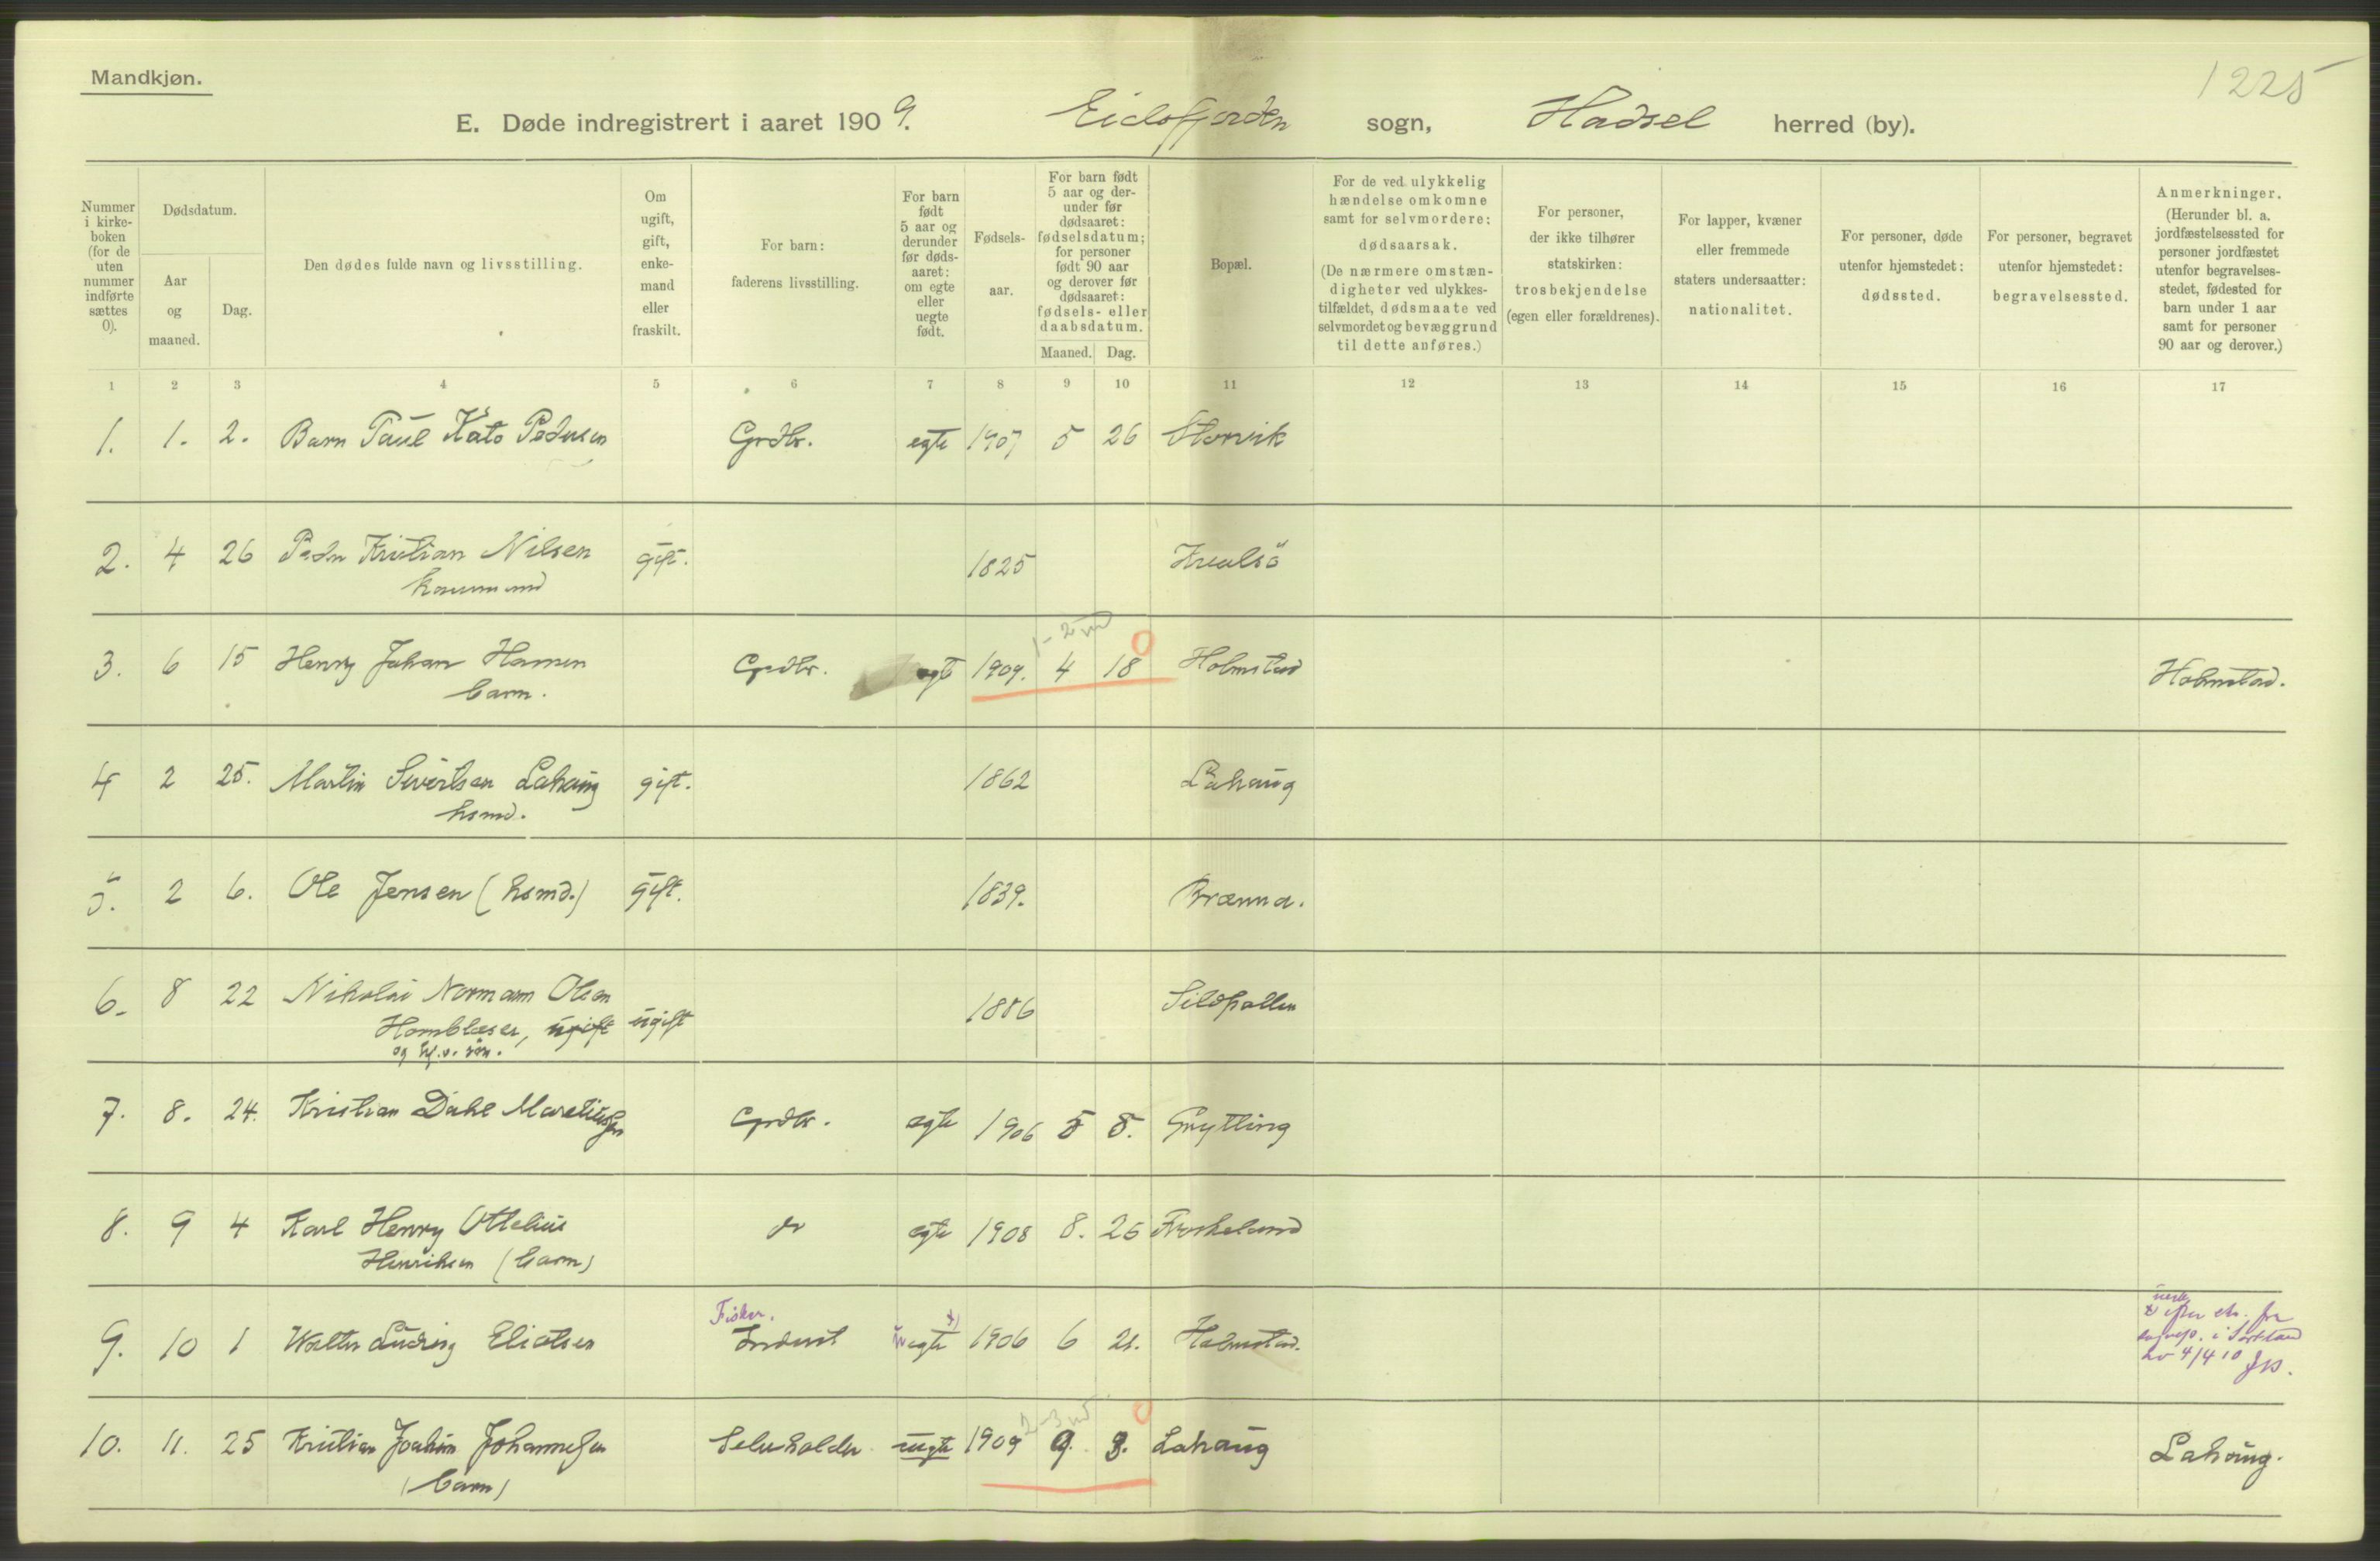 Mandkjøn.
1225
E. Døde indregistrert i aaret 1909. Eidsfjorden sogn, Hadsel herred (by).
Nummer i kirke-boken (for de uten nummer indførte sættes 0).
Dødsdatum.
Aar og maaned.
Dag.
Den dødes fulde navn og livsstilling.
Om ugift, gift, enke-mand eller fraskilt.
For barn: faderens livsstilling.
For barn født 5 aar og derunder før døds-aaret: om egte eller uegte født.
Fødsels-aar.
For barn født 5 aar og der-under før dødsaaret: fødselsdatum; for personer født 90 aar og derover før dødsaaret: fødsels- eller daabsdatum.
Maaned. Dag.
Bopæl.
For de ved ulykkelig hændelse omkomne samt for selvmordere: dødsaarsak. (De nærmere omstæn-digheter ved ulykkes-tilfældet, dødsmaate ved selvmordet og bevæggrund til dette anføres.)
For personer, der ikke tilhører statskirken: trosbekjendelse (egen eller forældrenes).
For lapper, kvæner eller fremmede staters undersaatter: nationalitet.
For personer, døde utenfor hjemstedet: dødssted.
For personer, begravet utenfor hjemstedet: begravelsessted.
Anmerkninger. (Herunder bl. a. jordfæstelsessted for personer jordfæstet utenfor begravelses-stedet, fødested for barn under 1 aar samt for personer 90 aar og derover.)
1 2 3 4 5 6 7 8 9 10 11 12 13 14 15 16 17
1. 1. 2. Barn Paul Kåto Pedersen Grdbr. egte 1907 5 26 Storvik
2. 4 26 Peder Kristian Nilsen gift. 1825 Kvalsö
kaarmand
1-2 md 0
3. 6 15 Henry Johan Hansen Grdbr. egte 1909. 4 18 Holmstad Holmstad.
barn.
4 2 25. Martin Sivertsen Lahaug gift. 1862 Lahaug
hsmd.
5. 2 6. Ole Jensen (hsmd.) gift. 1839. Brænna.
6. 8 22 Nikolai Normann Olsen ugift 1886 Sildpollen
Hornblæser, ugift
og søn.
7. 8. 24. Kristian Dahl Mareliussen Grdbr. egte 1906 5 8. Grytting
8. 9 4 Karl Henry Ottelius do egte 1908 8. 25 Froskeland
Henriksen (barn)
Fisker.
9. 10 1 Walter Ludvig Eliotsen Inderst uegte x) 1906 6 21. Holmstad.
x efter
i Sortland
4/4 10
2-3 md 0
10. 11. 25 Kristian Joakim Johannessen Selveholder uegte 1909 9. 3. Lahaug Lahaug.
(barn)